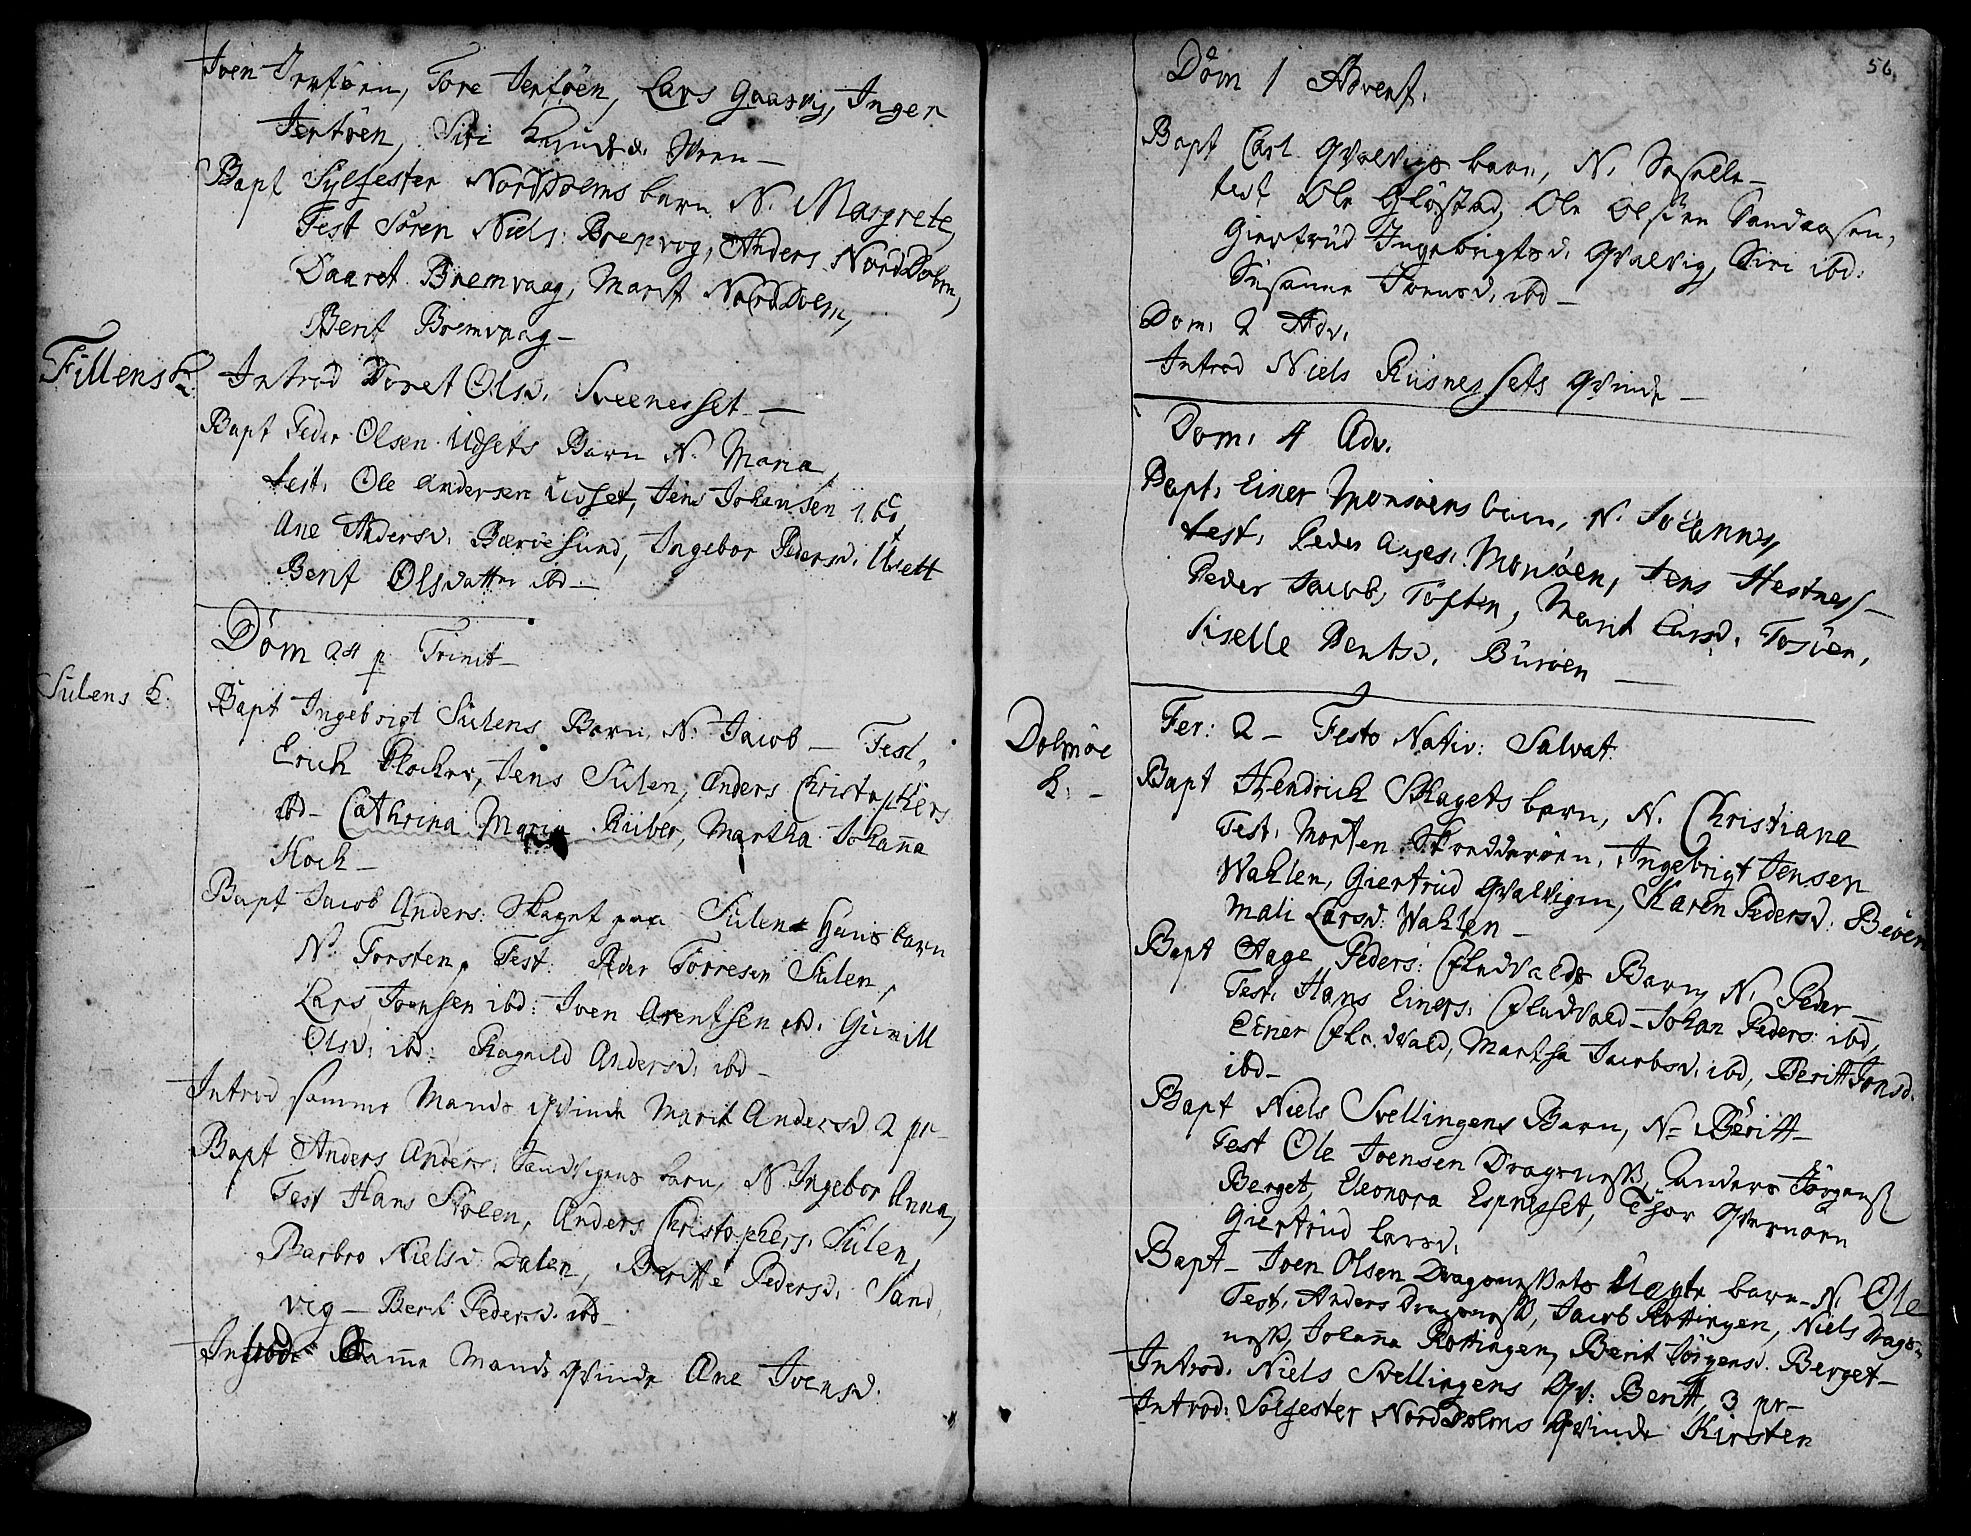 Iven Jertöen, Tore Jertöen, Lars Gaasvig, Inger
Jertöen, Siri Knudsd.
Bapt Sylfester Norddolms barn N. Margrete,
Test Sören Niels: Bremvog, Anders NordDolm,
Daaret Bremvaag, Marit NordDolm,
Berit Bremvaag –
Fillens K.
Introd Doret Olsd. Sveenesset –
Bapt Peder Olsen Udsets Barn N. Maria,
test. Ole Andersen Udset, Jens Johansen ibd,
Ane Andersd. Barvesund, Ingebor Pedersd. Usett
Berit Olsdatter ibd –
Dom 24 p Trinit –
Sulens K.
Bapt Ingebrigt Sulens Barn N. Jacob – Test,
Erich Plocker, Jens Sulen, Anders Christophers
ibd – Cathrina Maria Huber, Martha Johanna
Koch –
Bapt Jacob Anders: Skaget paa Sulens Huus barn
N. Torsten, Test: Peder Torresen Sulen,
Lars Ivensen ibd: Iven Arentsen ibd. Gunill
Olsd. ibd: Ragnild Andersd. ibd –
Introd samme Mands Qvinde Marit Andersd 2 pr –
Bapt Anders Anders: Sandvigens barn, N. Ingebor Anna,
Test Hans Stolen, Anders Christophers. Sulen,
Barbro Nielsd. Dalen, Beritte Pedersd. Sand
vig – Berit Pedersd. ibd –
Introd Samme Mands Qvinde Ane Ivensd.
56.
Dom 1 Advent.
Bapt Carl Qvalvigs barn, N.
test Ole Glöstad, Ole Olsen Sandaasen,
Giertrud Ingebrigtsd. Qvalvig, Siri ibd:
Susanne Ivensd. ibd –
Dom. 2 Adv.
Introd Niels Rusnessets Qvinde –
Dom. 4 Adv.
Bapt. Einer Monsöens barn, N. Johannes,
test. Peder Aages. Monsöen, Jens Hestness –
Peder Jacobs Toften, Marit Larsd. Tosöen,
Siselle Bentsd. Buröen –
Dolmöe
K. –
Fer: 2 – Festo Nativ: Salvat.
Bapt Hendrich Skagets barn, N. Christiane
Test. Morten Skredderöen, Ingebrigt Jensen
Wahlen, Giertrud Qvalvigen, Karen Pedersd: Beöen
Mali Larsd: Wahlen –
Bapt Aage Peders: Fladvalds Barn, N. Peder –
Test. Hans Einers. Fladvald – Johan Peders ibd,
Einer Fladvald, Martha Jacobsd. ibd, Beritt Jonsd.
ibd –
Bapt Niels Svellingens Barn, N – Beritt –
Test Ole Ivensen Dragsness, Anders Jörgens
Berget, Eleonora Espnesset, Thor Qvernöen
Giertrud Larsd.
Bapt – Iven Olsen Dragsnessets Uægte barn – N. Ole
Test. Anders Dragsness, Jacob Kottingen, Niels Drags-
ness, Johanna Kottingen, Berit Jörgensd. Berget –
Introd. Niels Svellingens Qv: Beritt, 3 pr –
Introd: Solfester NordDolms Qvinde Kirsten